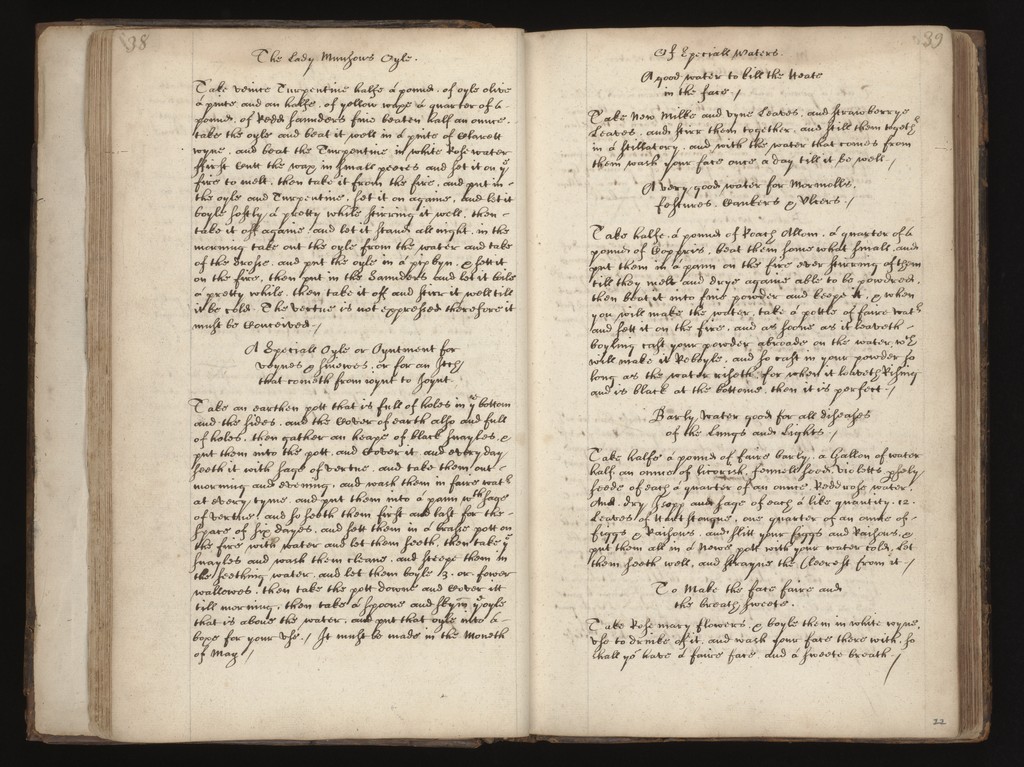 38
The Lady Munsows Oyle.
Take venice Turpentine halfe a pound, of oyle olive
a pinte, and an halfe, of yellow waxe a quarter of a
pound, of Redd saunders fine beaten half an ounce,
take the oyle and beat it well in a pinte of Clarett
wyne, and beat the Turpentine in white Rose water
ffirst Cutt the wax in small peeces and set it on yͤ
fire to melt, then take it from the fire, and put in
the oyle and Turpentine, set it on againe, and let it
boyle softly a pretty while stirring it well, then
take it off againe, and let it stand all night, in the
morning take out the oyle from the water and take
of the drosse, and put the oyle in a pipkyn, & sett it
on the fire, then put in the Saunders and let it boile
a pretty while, then take it off and stirr it well till
it be cold. The vertue is not expressed therefore it
must be Conceived./
A Speciall Oyle or Oyntment for
veynes & sinewes, or for an Itch
that cometh from vyne to Joynt.
Take an earthen pott that is full of holes in yͤ bottom
and the sides, and the Cover of earth also and full
of holes, then gather an heape of black snayles, &
put them into the pott, and Cover it, and every day
seeth it with sage of vertue, and take them out
morning and evening, and wash them in faire watʳ
at every tyme, and put them into a pann wᵗʰ sage
of vertue, and so seeth them first and last for the
space of six dayes, and sett them in a brasse pott on
the fire with water and let them seeth, then take yͤ
snayles and wash them cleane, and steepe them in
the seething water, and let them boyle 3. or. fower
wallowes, then take the pott downe and Cover itt
till morning, then take a spoone and skym yͤ oyle
that is above the water, and put that oyle into a
boxe for your use./ It must be made in the Moneth
of May./
39
Of Speciall Waters.
A good water to kill the Heate
in the face./
Take New Milke and vyne Leaves, and strawberrye
Leaves, and stirr them together, and still them togethʳ
in a stillatory, and with the water that comes from
them wash your face once a day till it be well./
A very good water for Mormolls,
festures, Cankers & Ulcers./
Take halfe a pound of Roach Allom, a quarter of a
pound of Coppris, beat them some what small, and
put them in a pann on the fire ever stirring of them
till they melt and drye againe able to be powdred,
then beat it into fine powder and keepe it, & when
you will make the water, take a pottle of faire watʳ
and sett it on the fire, and as soone as it leaveth
boyling cast your powder abroade on the water, wᶜʰ
will make it Reboyle, and so cast in your powder so
long as the water riseth, for when it leaveth Rising
and is black at the bottome, then it is perfect./
Barly Water good for all diseases
of the Lungs and Lights./
Take halfe a pound of faire barly, a Gallon of water
half an ounce of licorish, fennell seed, violetts, psely
seede of each a quarter of an ounce, Redd rose water,
And dry Isopp and sage of each a like quantity, 12.
Leaves of Hartstongue, one quarter of an ounce of
figgs & Raisons, and slitt your figgs and Raisons, &
put them all in a Newe pott with your water cold, let
them seeth well, and strayne the Cleerest from it./
To Make the face faire and
the breath sweete.
Take Rosemary flowers, & boyle them in white wyne,
use to drinke of it, and wash your face there with, so
shall yoᵘ have a faire face, and a sweete breath./
22